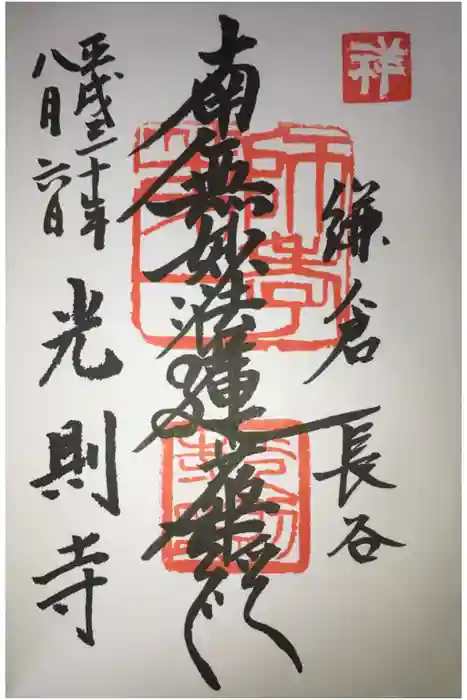 祥
鎌倉 長谷
南無妙法蓮華経
光則寺
平成二十年
八月六日